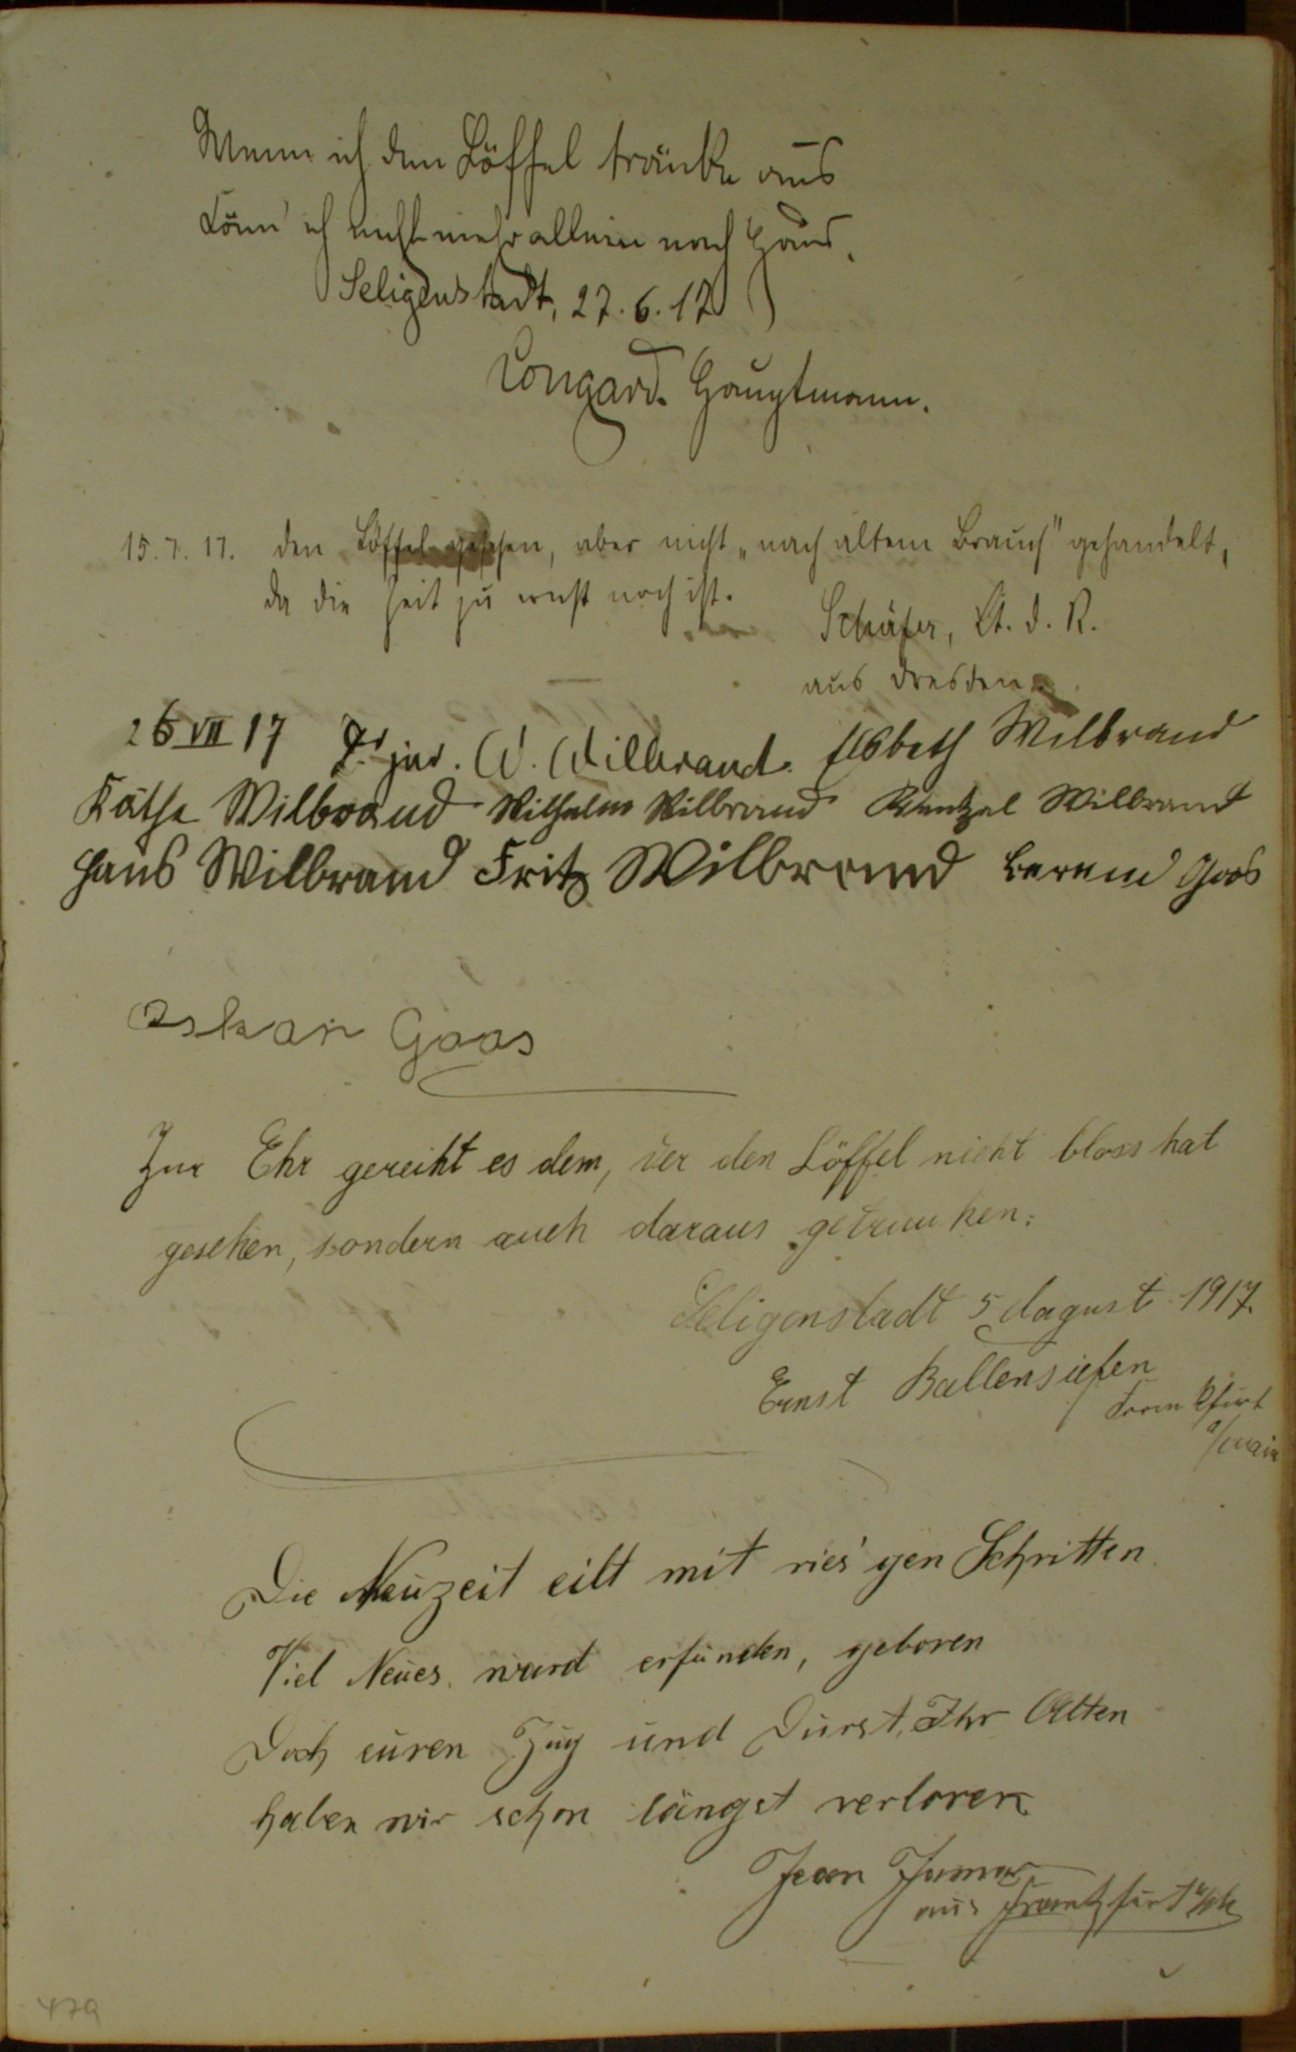 Wenn ich den Löffel tränke aus
Käm' ich nicht mehr allein nach Haus.
Seligenstadt, 27.6.17
Longard. Hauptmann.
15.7.17. den Löffel gesehen, aber nicht „nach altem Brauch" gehandelt,
da die Zeit zu ernst noch ist.
Schäfer, Lt. d. R.
aus Dresden.
26 VII 17 Dr jur. W. Wilbrand. Elsbeth Wilbrand
Käthe Wilbrand Wilhelm Wilbrand Wentzel Wilbrand
Hans Wilbrand Fritz Wilbrand Berend Goos
Oskar Goos
Zur Ehr gereicht es dem, der den Löffel nicht bloss hat
gesehen, sondern auch daraus getrunken.
Seligenstadt 5. August 1917.
Ernst Ballensiefen
Frankfurt
a/Main
Die Neuzeit eilt mit ries'gen Schritten
Viel Neues ward erfunden, geboren
Doch euren Zug und Durst, Ihr Alten
haben wir schon längst verloren
Jean
aus Frankfurt a/M
479